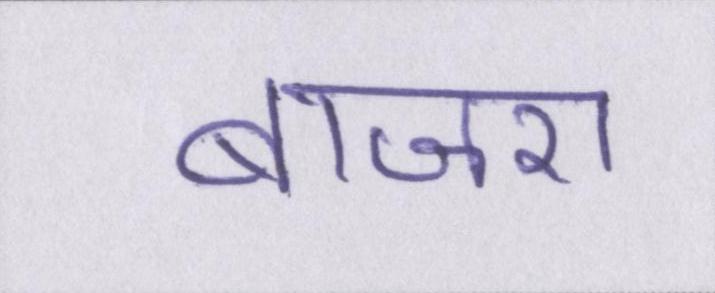 बाजरा